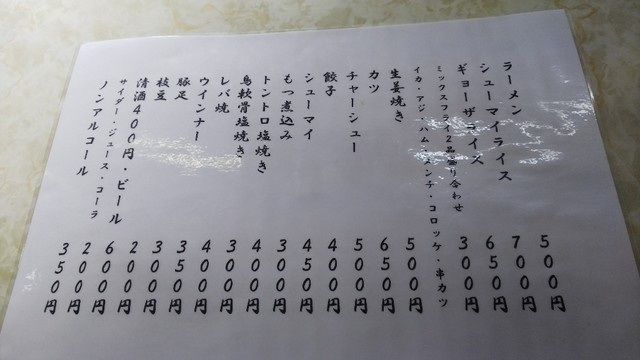 ラーメン 500円
シューマイライス 700円
ギョーザライス 650円
ミックスフライ2品盛り合わせ 300円
イカ・アジ・ハム・メンチ・コロッケ・串カツ
生姜焼き 500円
カツ 650円
チャーシュー 500円
餃子 400円
シューマイ 450円
もつ煮込み 300円
トントロ塩焼き 400円
鳥軟骨塩焼き 300円
レバ焼 400円
ウインナー 350円
豚足 300円
枝豆 200円
清酒400円・ビール 600円
サイダー・ジュース・コーラ 200円
ノンアルコール 350円